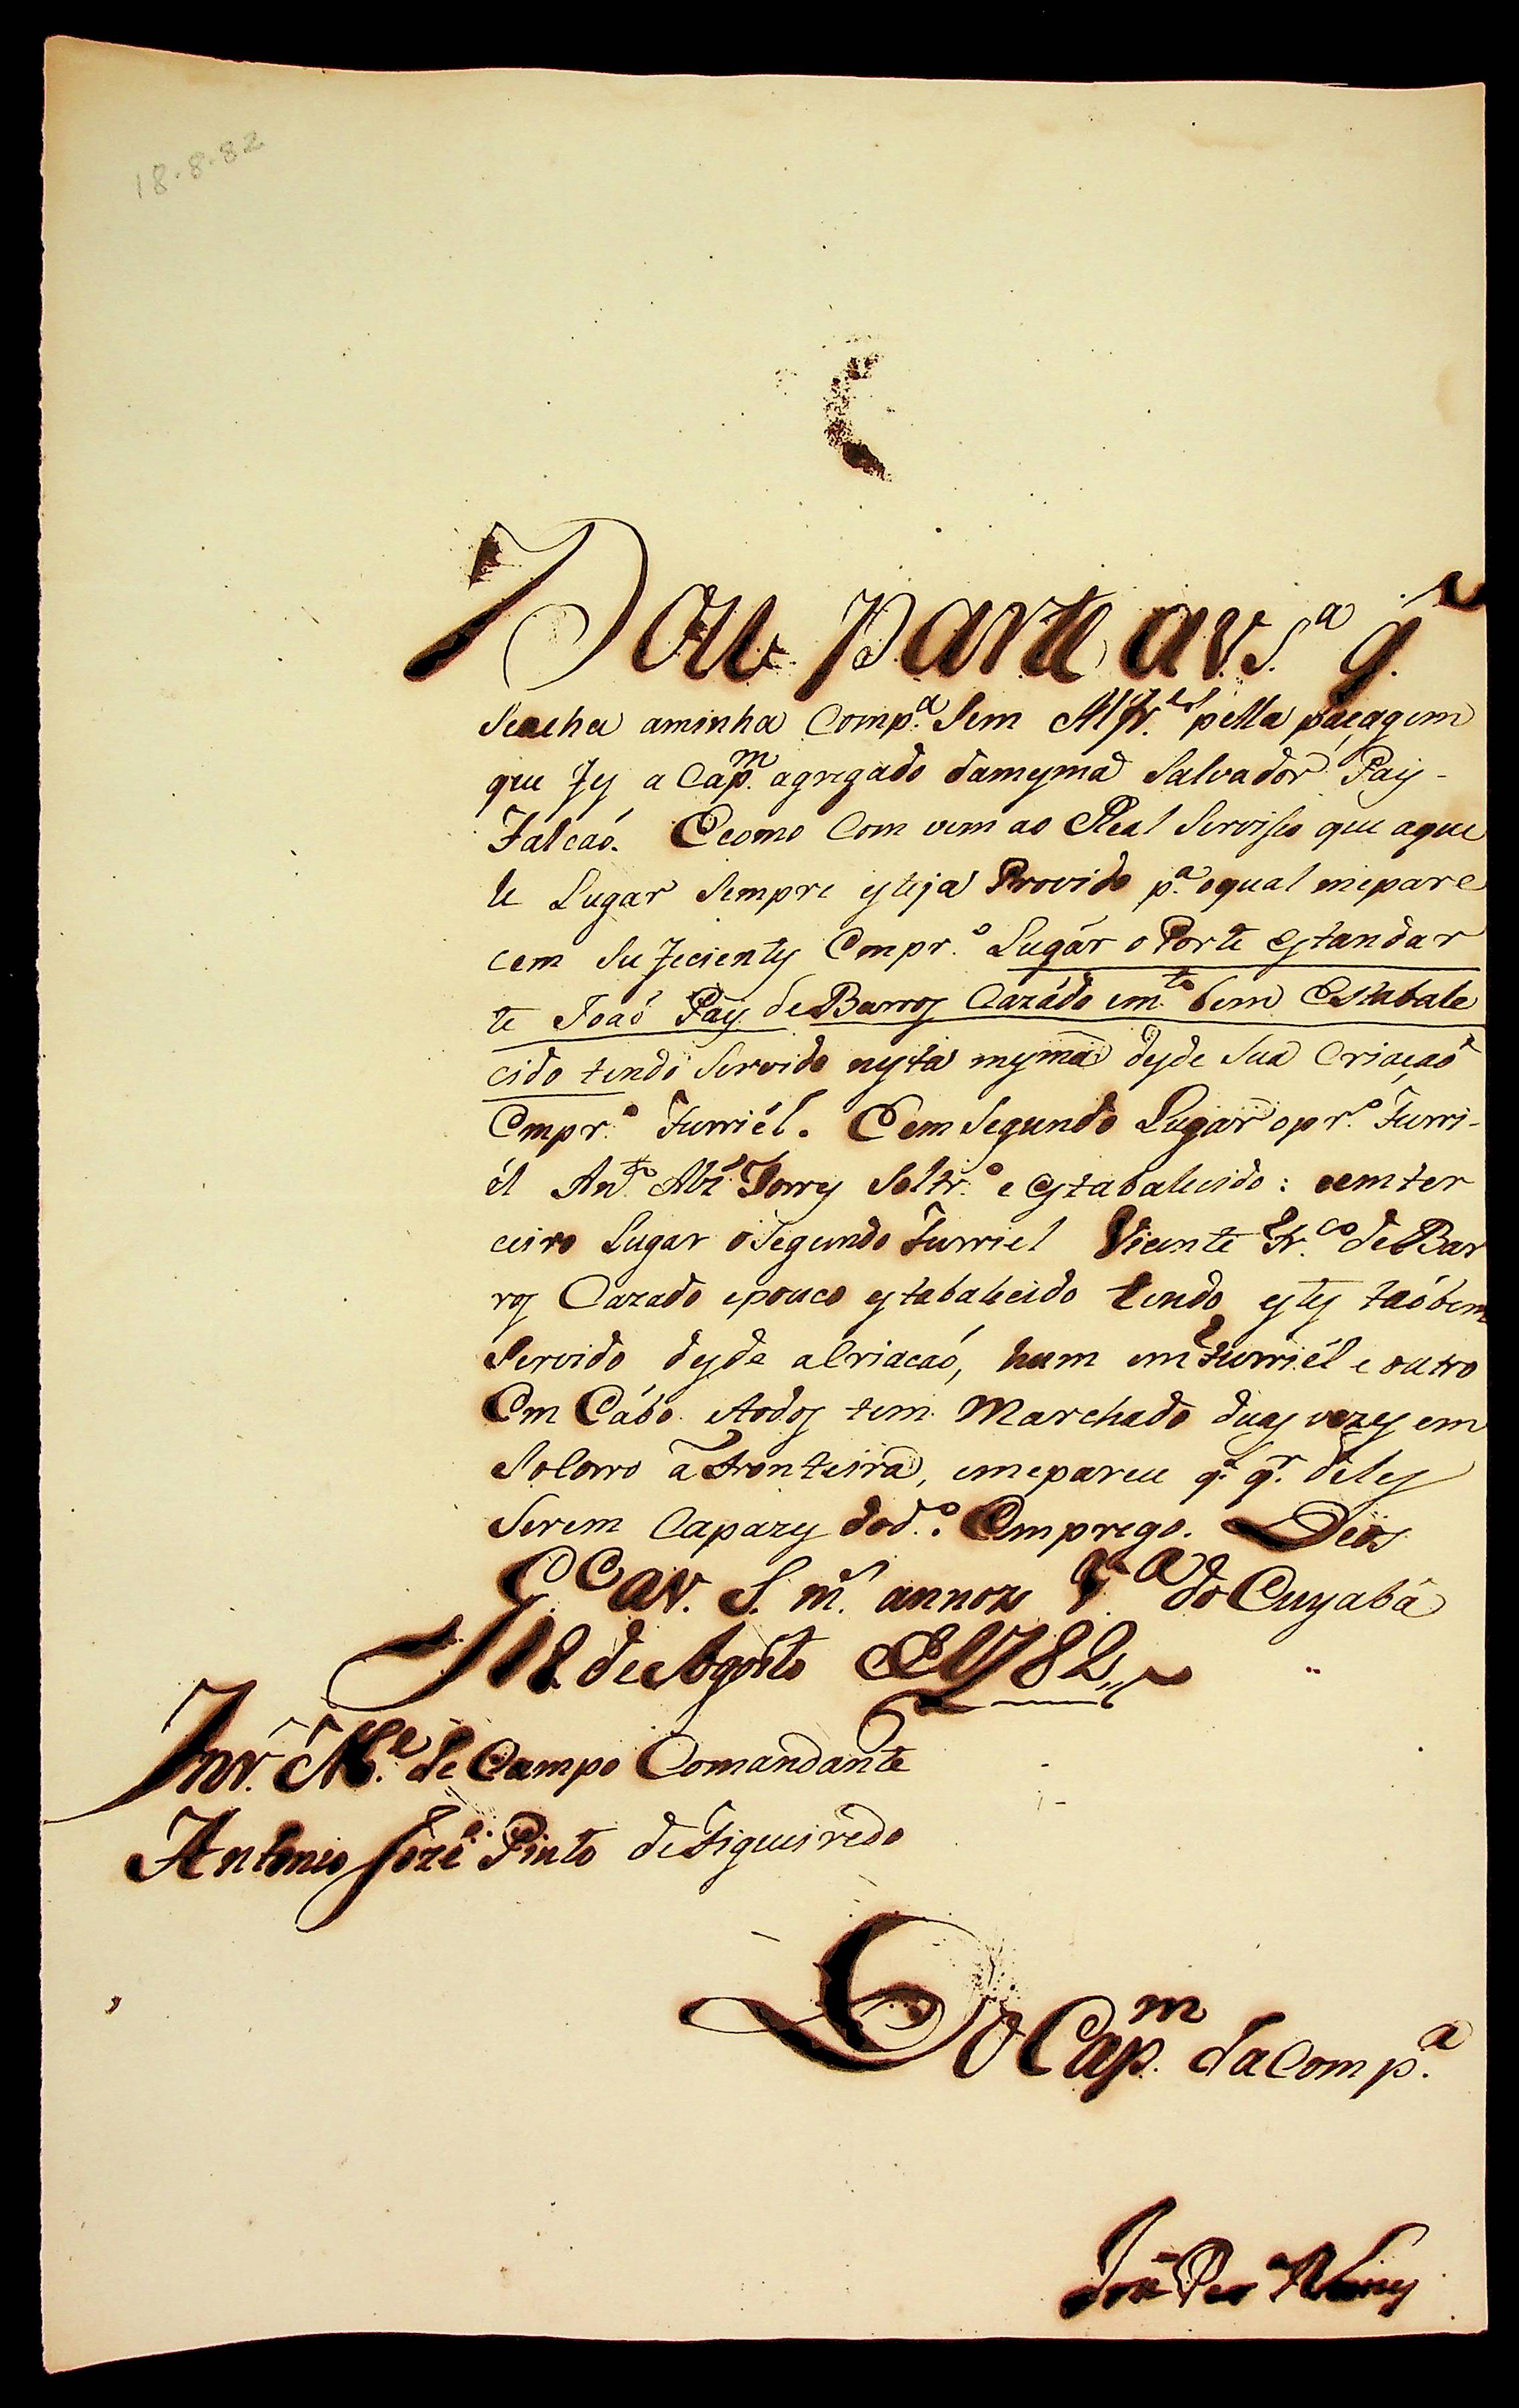 18.8.82
Dou parte aV.S.ª q.
Seacha aminha Comp.ª Sem Alfr.es pella paçagem
que fes a Cap.m agregado damesma Salvador Pais
Falcaó. Ecomo Com vem ao Real Servisso que aque
le Lugar Sempre esteja Provido p.ª oqual mepare
cem Sufecientes Empr.º Lugár o Porte Estandar
te Joaó Pais de Barros Cazádo em.to bem Estabale
cido tendo Servido nesta mesma desde Sua Criaçaó
Empr.º Furriél. E em Segundo Lugar opr.º Furri-
él Ant.º Torres Soltr.º e Estabalecido: eemter
ceiro Lugar oSegundo Furriel Vicente Fr.co de Bar
ros Cazado epouco estabalecido tendo estes taóbem
Servido desde aCriacaó, hum em Furriél e outro
Em Cábo. etodos tem Marchado duas vezes em
Socorro á Fronteira, emeparece q.l q.r deles
Serem Capazes dod.º Emprego. Deos
G.e aV.S. m.s annos V.ª do Cuyabá
18 de Agosto de 1782
Snr. M.e de Campo Comandante
Antonio Jozé Pinto de Figueiredo
Do Cap.m da Comp.ª
Nunes